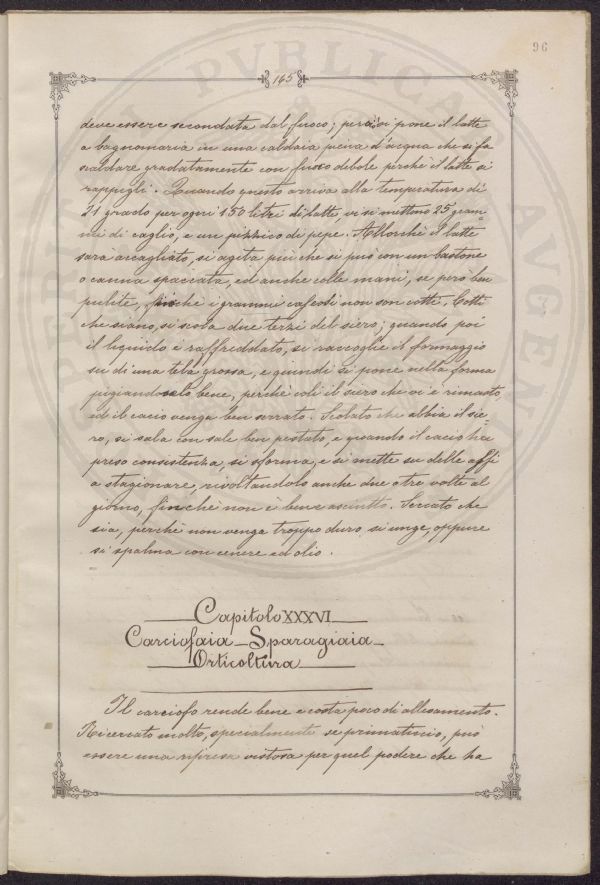 96
165
deve essere secondata dal fuoco; perciò si pone il latte
a bagnomaria in una caldaia piena d'acqua che si fa
scaldare gradatamente con fuoco debole perchè il latte si
rappigli. Quando questo arriva alla temperatura di
21 grado per ogni 150 litri di latte vi si mettono 25 gram=
mi di caglio, e un pizzico di pepe. Allorchè il latte
sarà accagliato, si agita più che si può con un bastone
o canna spaccata, ed anche colle mani, se però ben
pulite, finchè i grammi caseosi non son cotti. Cotti
che siano, si scola due terzi del siero; quando poi
il liquido è raffreddato, si raccoglie il formaggio
su di una tela grossa, e quindi si pone nella forma
pigiandovelo bene, perchè coli il siero che vi è rimasto,
ed il cacio venga ben serrato. Scolato che abbia il sie=
ro, si sala con sale ben pestato, e quando il cacio ha
preso consistenza, si sforma, e si mette su delle assi
a stagionare, rivoltandolo anche due o tre volte al
giorno, finchè non è bene asciutto. Seccato che
sia, perchè non venga troppo duro si unge, oppure
si spalma con cenere ed olio.
Capitolo XXXVI
Carciofaia Sparagiaia
Orticoltura
Il carciofo rende bene e costa poco di allevamento.
Ricercato molto, specialmente se primaticcio, può
essere una ripresa vistosa per quel podere che ha
PVBLICA
AVGENI
PERIN